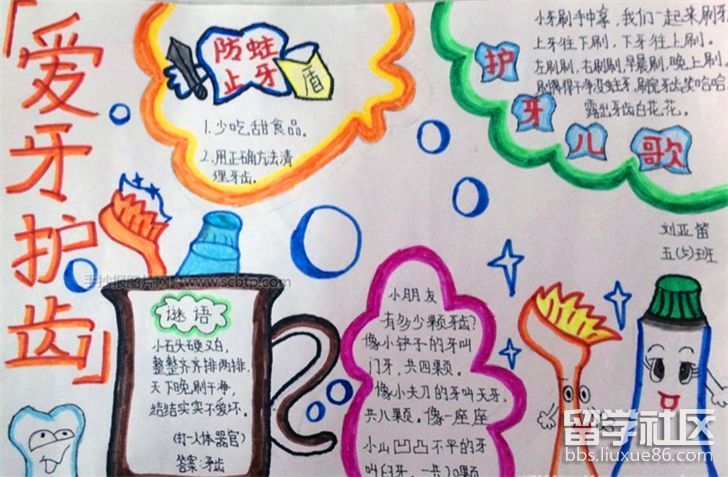 「爱牙护齿」
防蛀
止牙
盾
1.少吃甜食品。
2.用正确方法清
理牙齿。
护牙儿歌
我们一起来刷牙
上牙往下刷,下牙往上刷。
左刷刷,右刷刷,早晨刷,晚上刷。
没蛀牙,刷完牙齿笑哈哈
露出牙齿白花花。
刘亚笛
五(5)班
手抄报图片网:www.scbtp.com
谜语
小石头硬又白,
整整齐齐排两排,
天下晚刷干净,
结结实实不爱坏。
(打一人体器官)
答案:牙齿
小朋友
有多少颗牙齿?
像小铲子的牙叫
门牙,共四颗。
像小尖刀的牙叫犬牙,
共八颗。像一座座
小山凹凸不平的牙
叫臼牙,一共20颗
留学社区
bbs.liuxue86.com